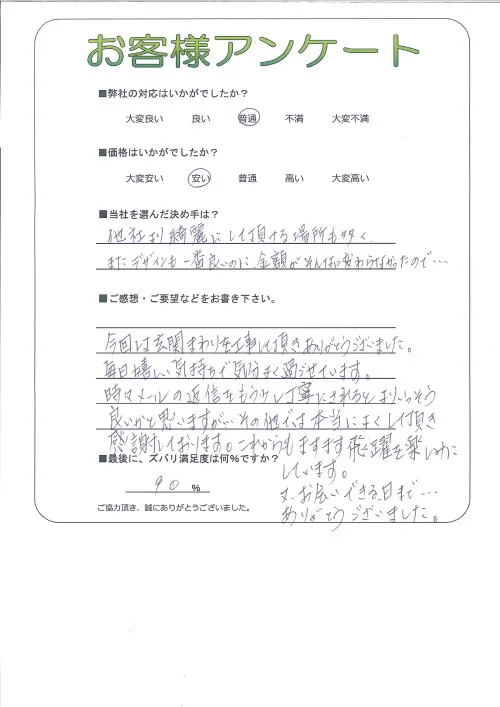 お客様アンケート
■弊社の対応はいかがでしたか？
大変良い 良い 普通 不満 大変不満
■価格はいかがでしたか？
大変安い 安い 普通 高い 大変高い
■当社を選んだ決め手は？
他社より綺麗にして頂ける場所も多く、
またデザインも一番良いのに、金額がそんなに変わらなかったので…
■ご感想・ご要望などをお書き下さい。
今回は玄関まわりを工事して頂きありがとうございました。
毎日嬉しい気持ちで気分よく過ごせています。
時々メールの返信をもう少し丁寧にされるとよりいっそう
良いかと思いますが…その他では本当によくして頂き
感謝しております。これからもますます飛躍を楽しみに
しています。
又、お会いできる日まで…
ありがとうございました。
■最後に、ズバリ満足度は何%ですか？
90 %
ご協力頂き、誠にありがとうございました。